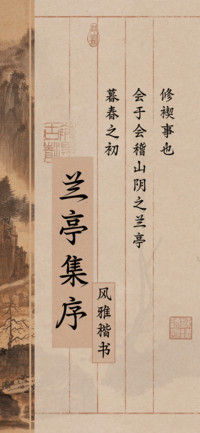 暮春之初
会于会稽山阴之兰亭
修禊事也
兰亭集序
风雅楷书